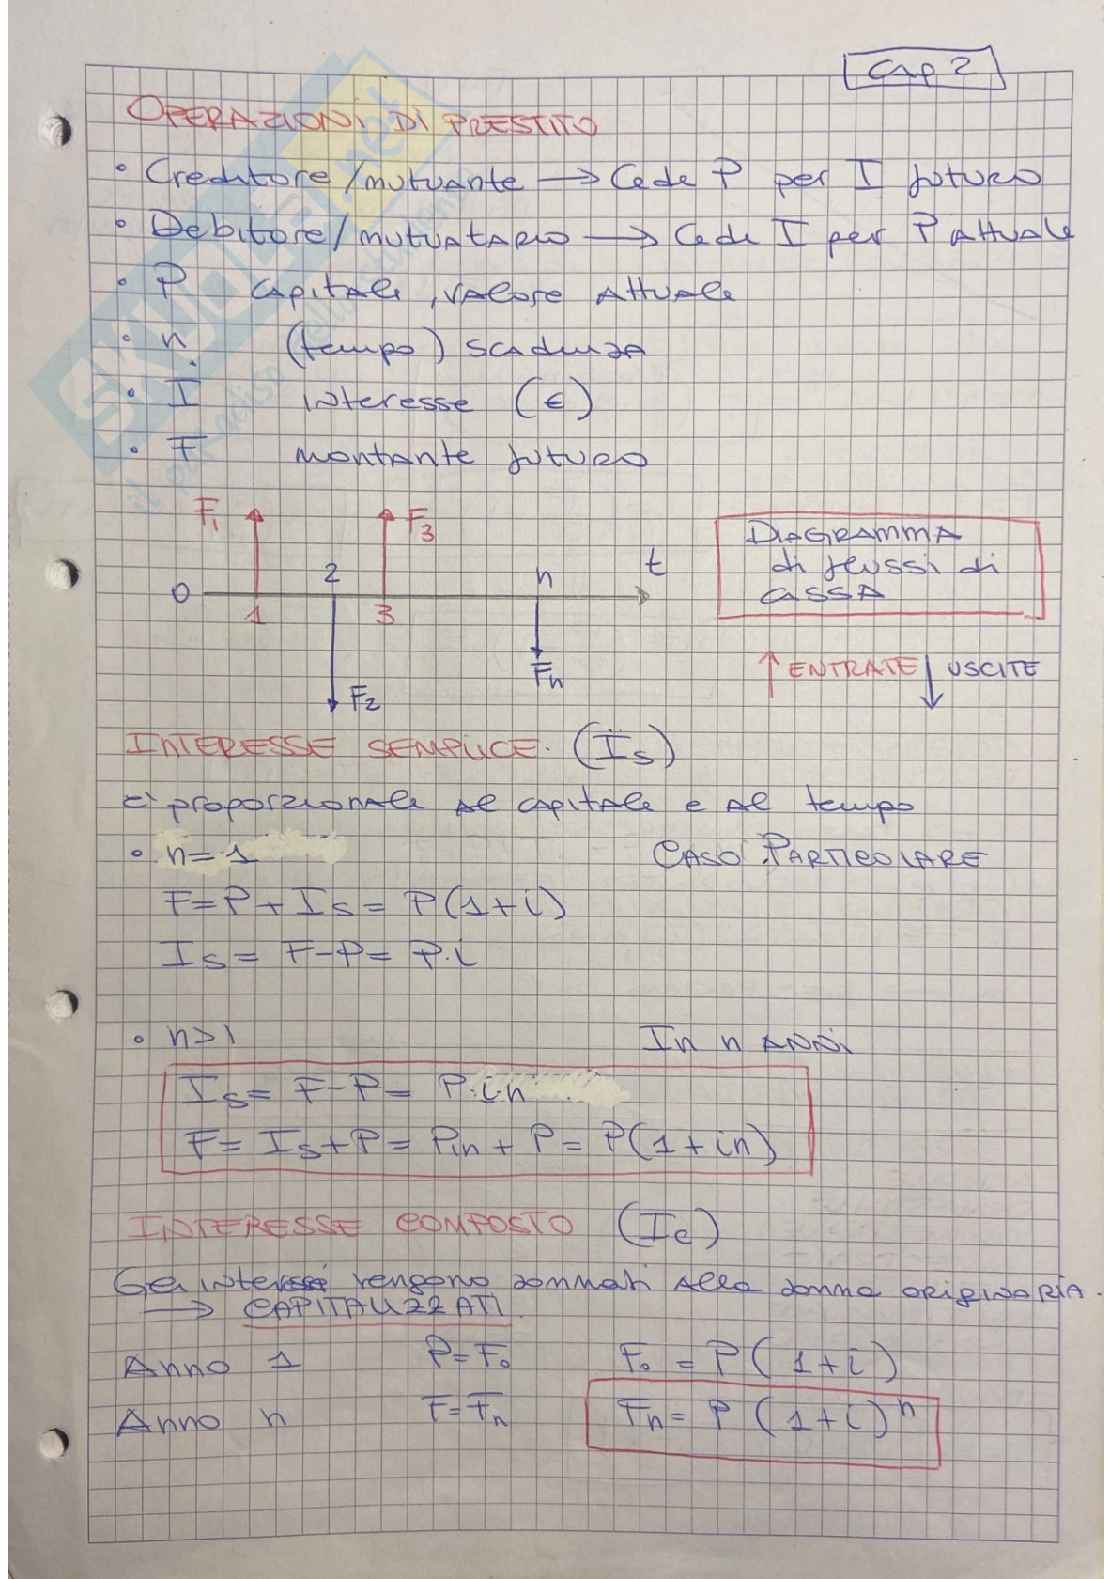 Cap 2
OPERAZIONI DI PRESTITO
• Creditore/mutuante → Cede P per I futuro
• Debitore/mutuatario → Cede I per P attuale
• P capitale, valore attuale
• n (tempo) scadenza
• I interesse (€)
• F montante futuro
F₁ F₃
DIAGRAMMA
di flussi di
cassa
0 1 2 3 n t
F₂ Fn
↑ ENTRATE ↓ USCITE
INTERESSE SEMPLICE (Is)
E' proporzionale al capitale e al tempo
• n=1 CASO PARTICOLARE
F=P+Is= P(1+i)
Is= F-P= P·i
• n>1 In n ANNI
Is= F-P= P·i·n
F= Is+P= Pin + P= P(1+in)
INTERESSE COMPOSTO (Ic)
Gli interessi vengono sommati alla somma originaria.
→ CAPITALIZZATI
Anno 1 P=F₀ F₀ = P(1+i)
Anno n F=Fn Fn= P(1+i)ⁿ